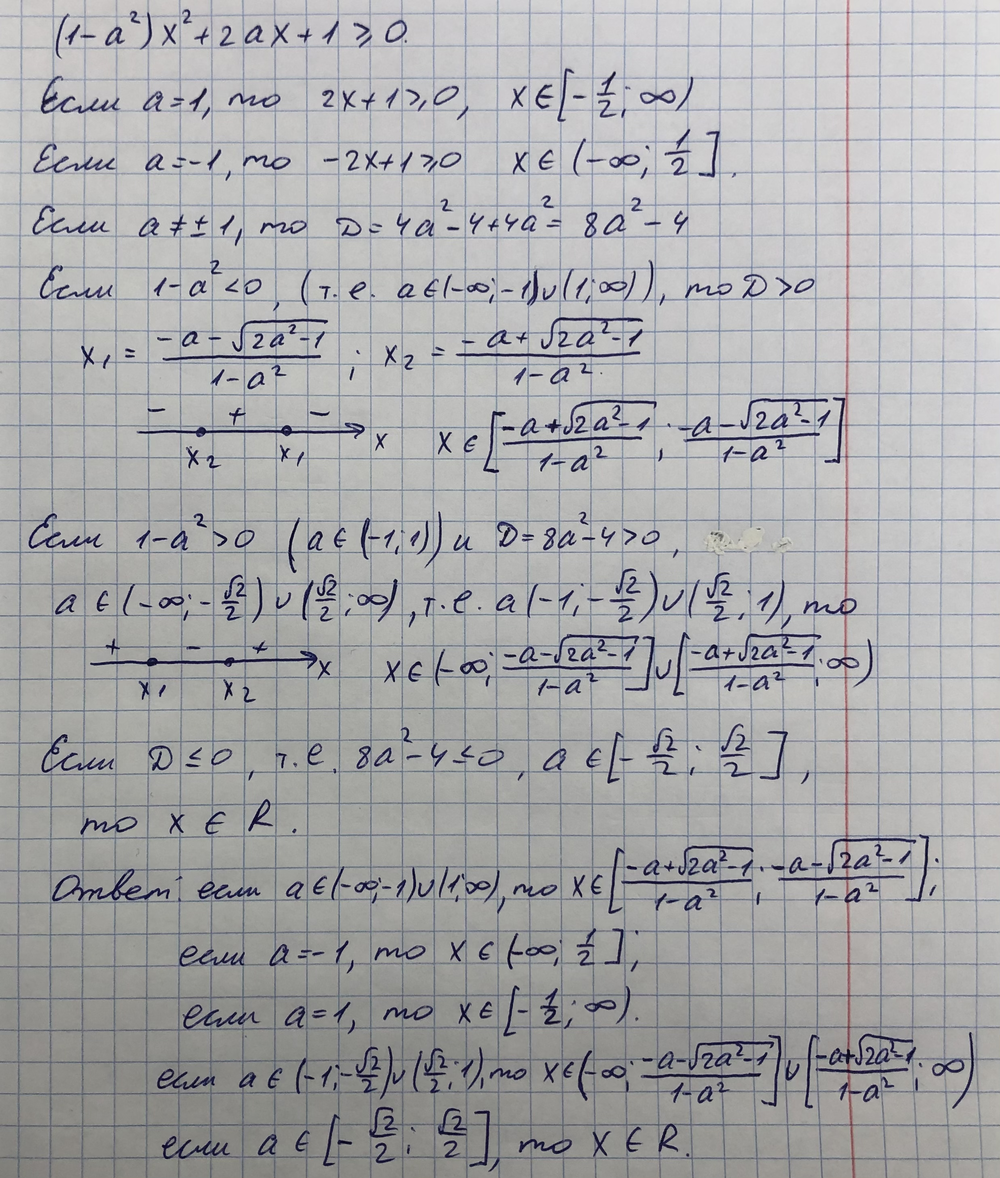 (1-a²)x²+2ax+1⩾0.
Если a=1, то 2x+1⩾0, x∈[-1/2; ∞)
Если a=-1, то -2x+1⩾0 x∈(-∞; 1/2].
Если a≠±1, то D=4a²-4+4a²=8a²-4
Если 1-a²<0, (т.е. a∈(-∞;-1)∪(1;∞)), то D>0
x₁ = (-a-√(2a²-1))/(1-a²) ; x₂ = (-a+√(2a²-1))/(1-a²).
- + -
x₂ x₁ x x∈[(-a+√(2a²-1))/(1-a²); (-a-√(2a²-1))/(1-a²)]
Если 1-a²>0 (a∈(-1;1)) и D=8a²-4>0,
a∈(-∞;-√2/2)∪(√2/2;∞), т.е. a(-1;-√2/2)∪(√2/2;1), то
+ - +
x₁ x₂ x x∈(-∞; (-a-√(2a²-1))/(1-a²)]∪[(-a+√(2a²-1))/(1-a²); ∞)
Если D≤0, т.е. 8a²-4≤0, a∈[-√2/2; √2/2],
то x∈R.
Ответ: если a∈(-∞;-1)∪(1;∞), то x∈[(-a+√(2a²-1))/(1-a²); (-a-√(2a²-1))/(1-a²)];
если a=-1, то x∈(-∞; 1/2];
если a=1, то x∈[-1/2; ∞).
если a∈(-1;-√2/2)∪(√2/2;1), то x∈(-∞; (-a-√(2a²-1))/(1-a²)]∪[(-a+√(2a²-1))/(1-a²); ∞)
если a∈[-√2/2; √2/2], то x∈R.